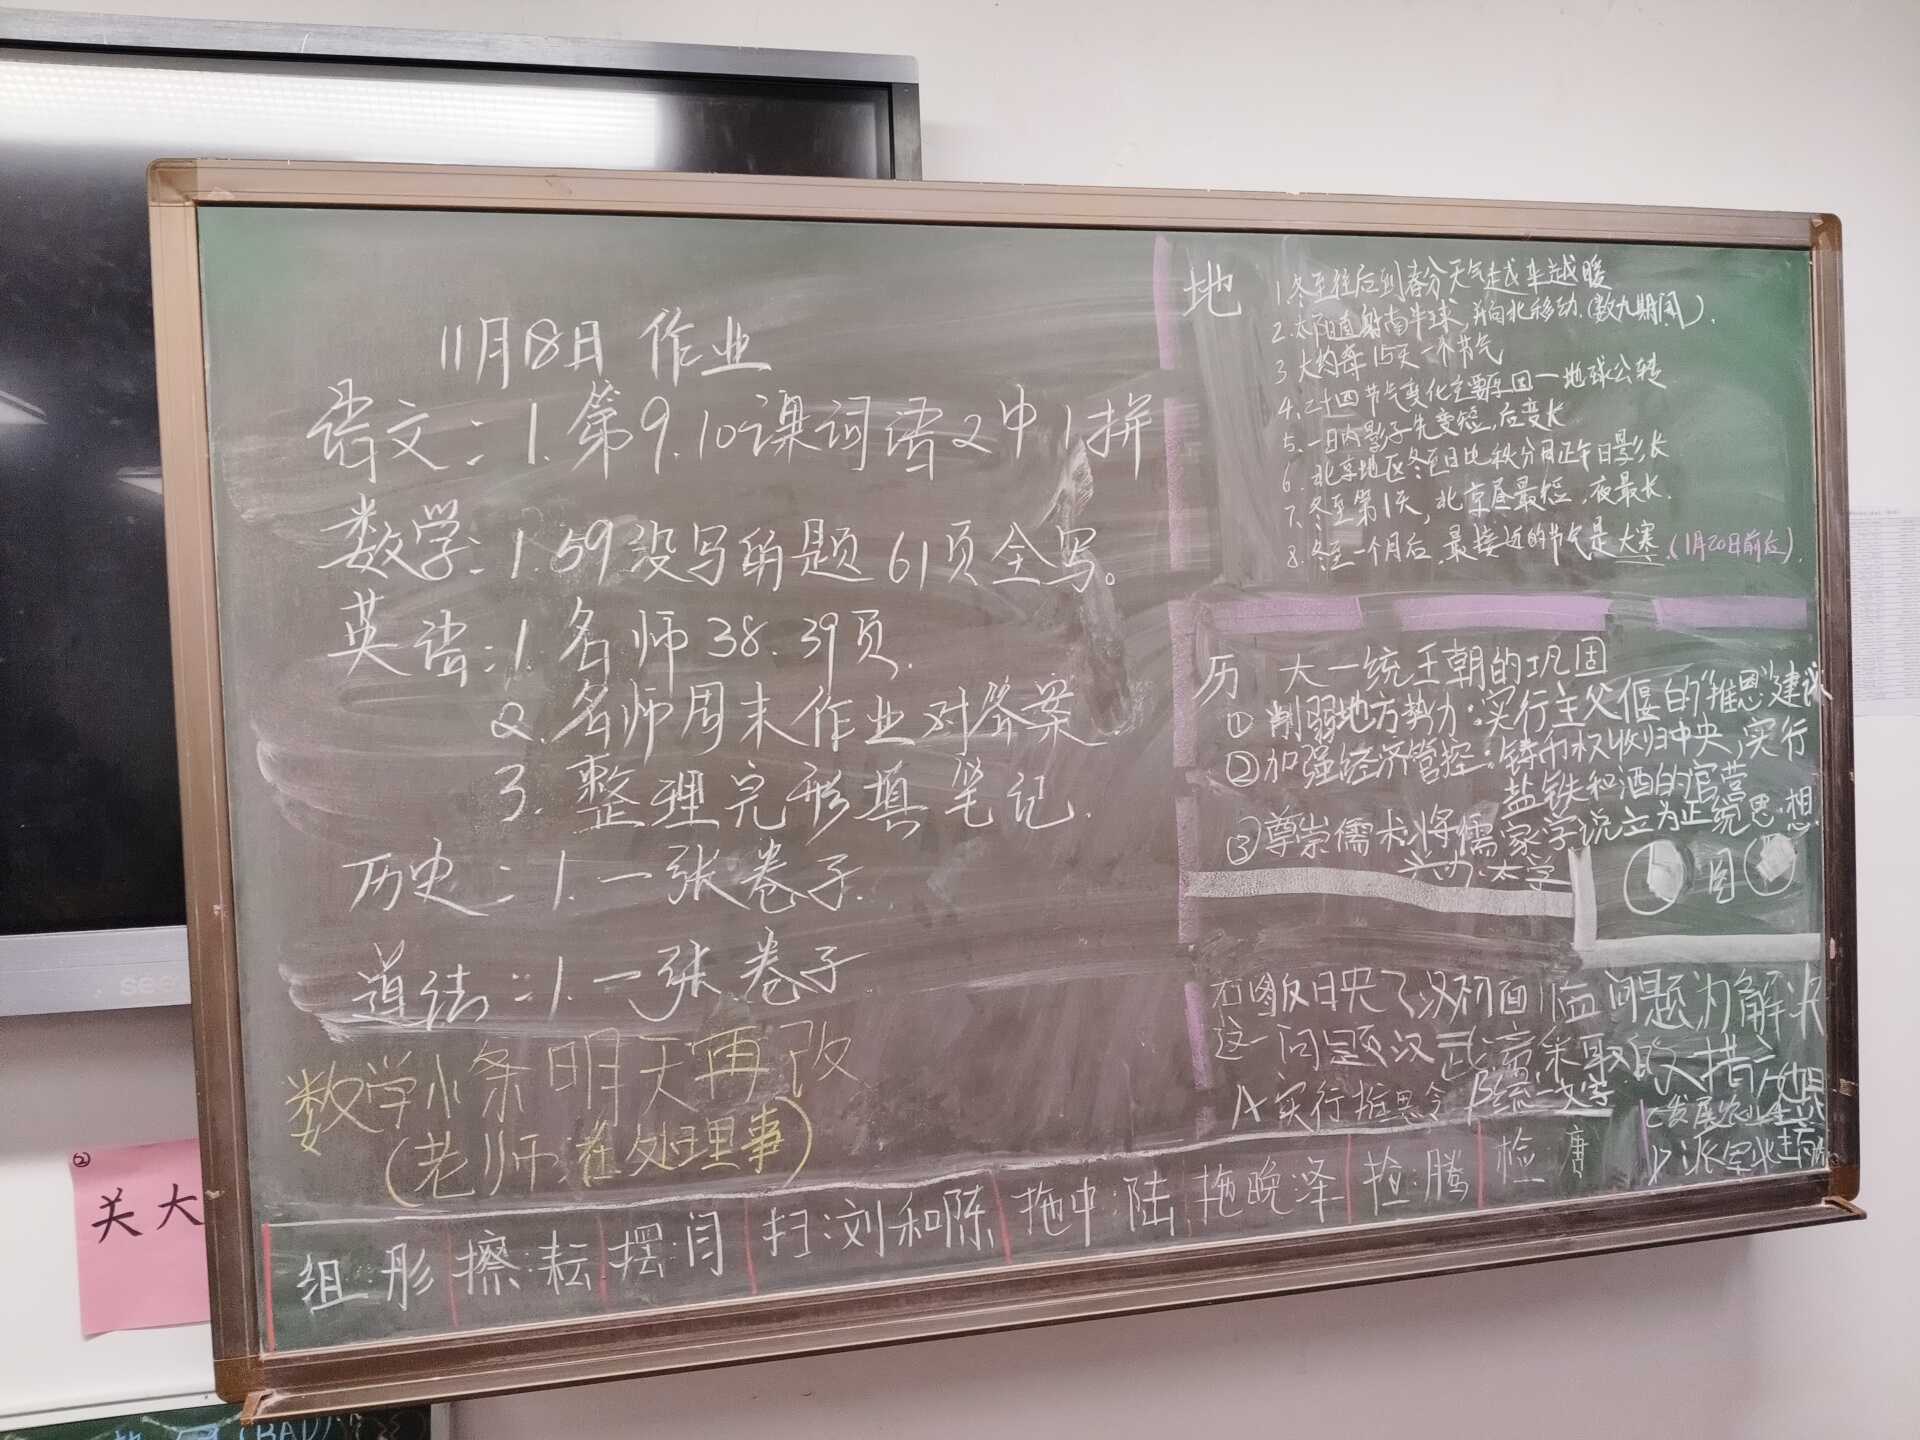 11月18日 作业
语文：1.第9.10课词语2中1拼
数学：1.59没写的题 61页全写。
英语：1.名师38.39页.
2.名师周末作业对答案.
3.整理完形填笔记.
历史：1.一张卷子.
道法：1.一张卷子
数学小条明天再改
(老师在处理事)
地
1.冬至往后到春分天气越来越暖
2.太阳直射南半球,并向北移动.(数九期间).
3 大约每15天一个节气
4.二十四节气变化主要原因一地球公转
5.一日内影子先变短,后变长
6.北京地区冬至日比秋分日正午日影长
7.冬至第1天,北京昼最短,夜最长.
8.冬至一个月后,最接近的节气是大寒.(1月20日前后).
历 大一统王朝的巩固
①削弱地方势力:实行主父偃的"推恩"建议
②加强经济管控:铸币权收归中央,实行
盐铁和酒的官营
③尊崇儒术,将儒家学说立为正统思想.
兴办太学
图
右图反映了汉初面临问题为解决
这一问题汉武帝采取的措施
A实行推恩令 B统一文字
C发展农业生产
D派军北击
组:彤 擦:耘 摆:闫 扫:刘和陈 拖中:陆 拖晚泽 抢:腾 检:唐
②
关大
see